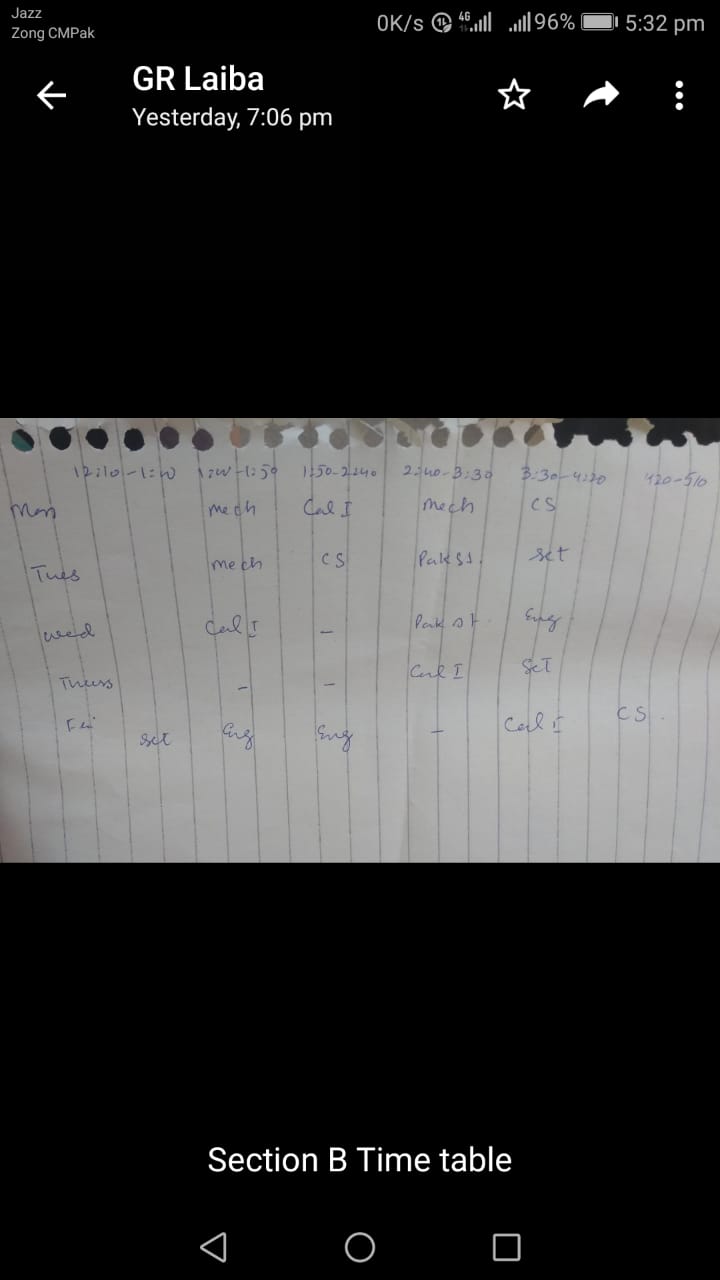 Jazz
Zong CMPak
0K/s 4G 96% 5:32 pm
GR Laiba
Yesterday, 7:06 pm
12:10-1:00 1:00-1:50 1:50-2:40 2:40-3:30 3:30-4:20 420-510
Mon Mech Cal I Mech CS
Tues Mech CS Pak st. set
wed Cal I - Pak st. Eng
Thurs - - Cal I Set
Fri set Eng Eng - Cal I CS.
Section B Time table